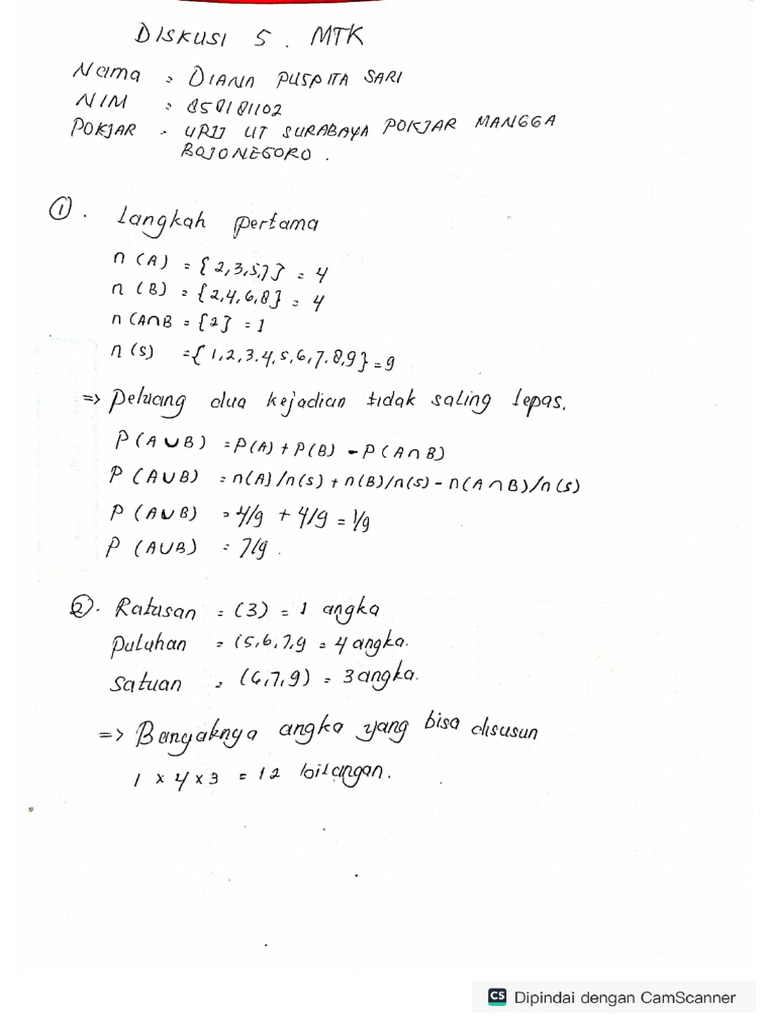 DISKUSI 5. MTK
Nama : DIANA PUSPITA SARI
NIM : 858181102
POKJAR : UPBJJ UT SURABAYA POKJAR MANGGA
BOJONEGORO.
①. Langkah pertama
n (A) = {2,3,5,7} = 4
n (B) = {2,4,6,8} = 4
n (A∩B = {2} = 1
n (s) = {1,2,3.4,5,6,7,8,9} = 9
=> Peluang dua kejadian tidak saling lepas.
P (A ∪ B) = P(A) + P(B) - P(A∩B)
P (A∪B) = n(A)/n(s) + n(B)/n(s) - n(A∩B)/n(s)
P (A∪B) = 4/9 + 4/9 = 1/9
P (A∪B) = 7/9.
②. Ratusan = (3) = 1 angka
Puluhan = (5,6,7,9 = 4 angka.
Satuan = (6,7,9) = 3 angka.
=> Banyaknya angka yang bisa disusun
1 x 4 x 3 = 12 bilangan.
CS Dipindai dengan CamScanner